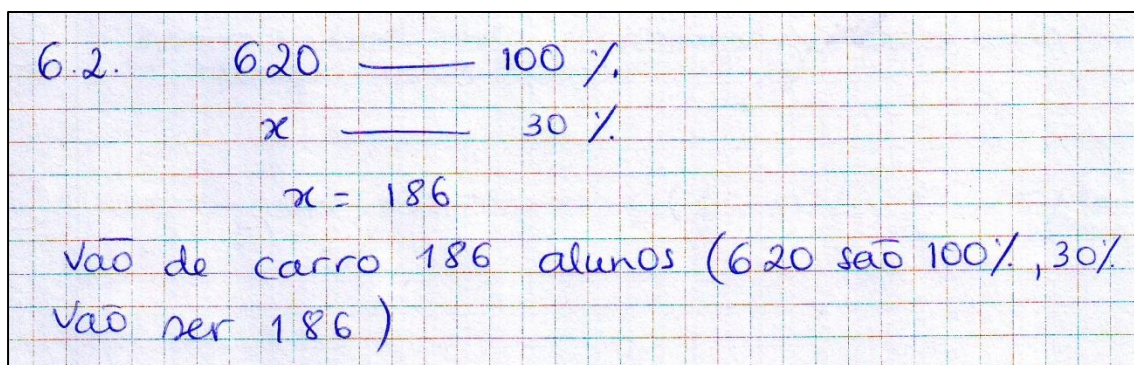 6.2. 620 — 100 %
x — 30 %
x = 186
Vão de carro 186 alunos (620 são 100%, 30%
vão ser 186)